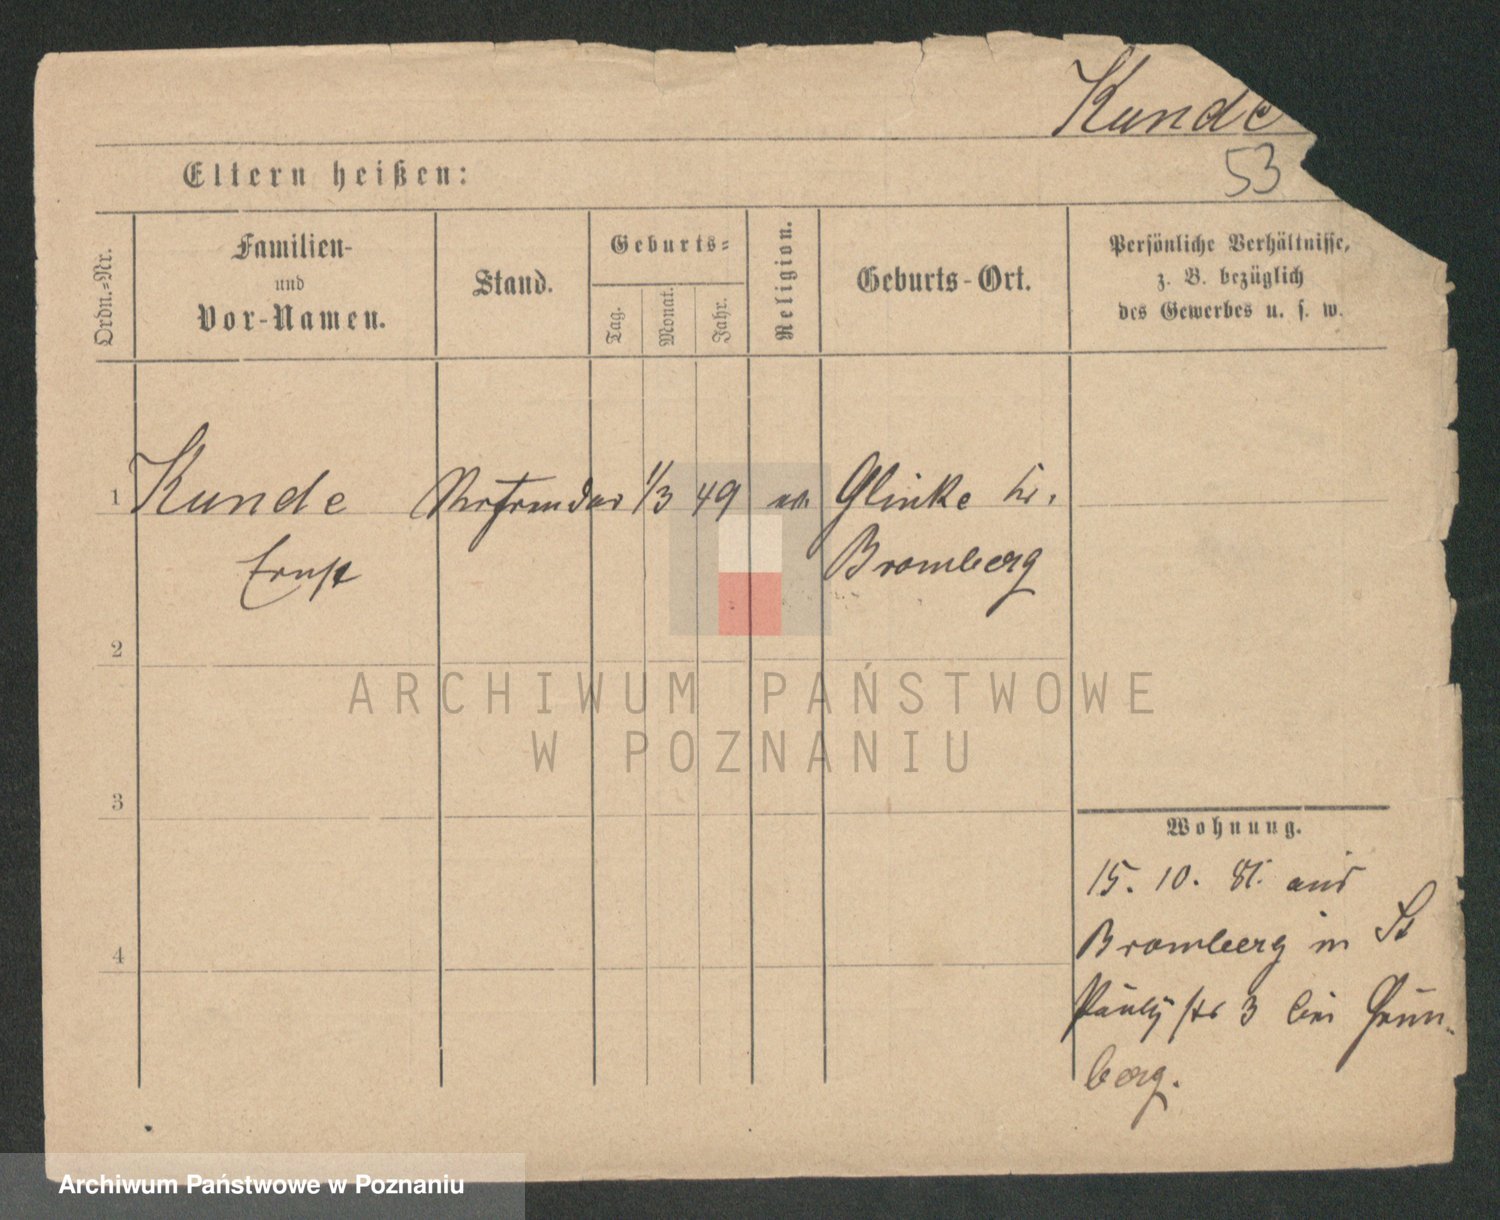 Kunde
53
Eltern heißen:
Ordn.=Nr.
Familien-
und
Vor-Namen.
Stand.
Geburts=
Tag.
Monat.
Jahr.
Religion.
Geburts-Ort.
Persönliche Verhältnisse,
z. B. bezüglich
des Gewerbes u. s. w.
1 Kunde 1/3 49 Glinke
Ernst Bromberg
2
ARCHIWUM PAŃSTWOWE
W POZNANIU
3
Wohnung.
15. 10. 81. aus
Bromberg in St
3 bei Grün-
4
berg.
Archiwum Państwowe w Poznaniu